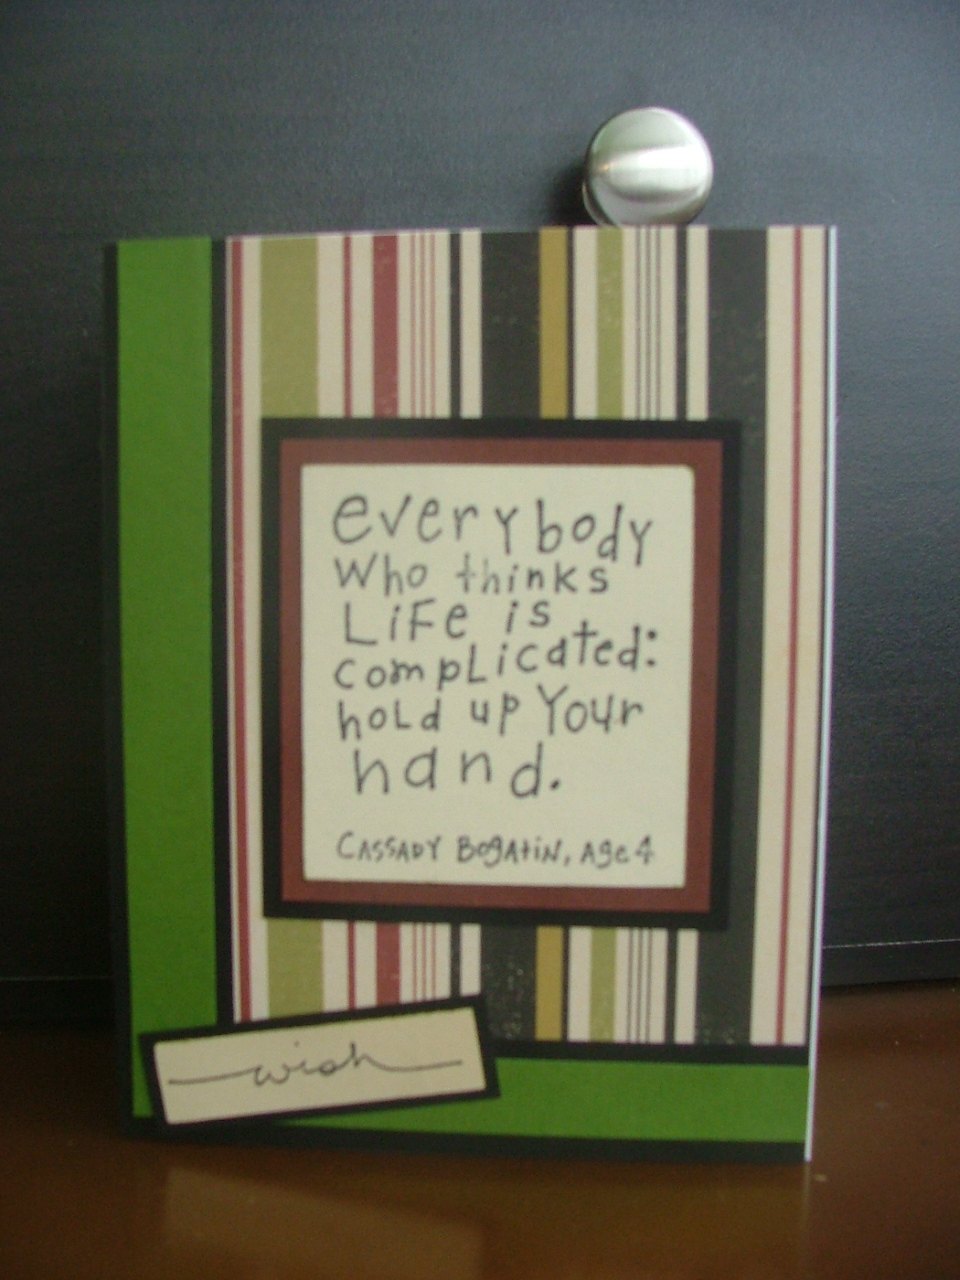 everybody
who thinks
LiFe is
compLicated:
hoLd up Your
hand.
CASSADY BOgAtiN, Age 4
wish